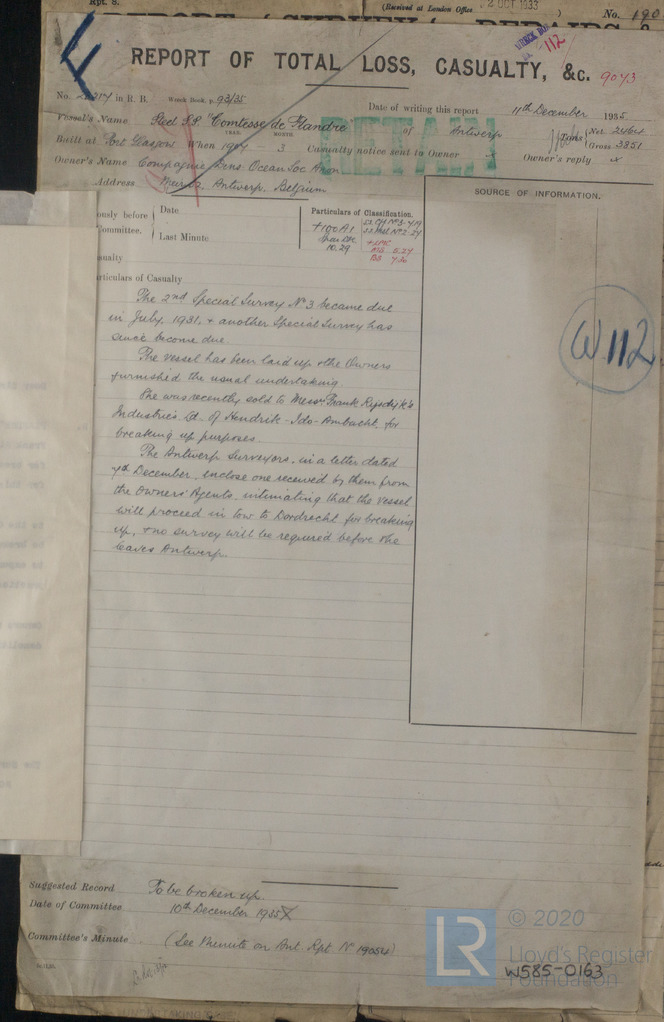 Rpt. 8.
(Received at London Office 2 OCT 1933 )
No. 190
WRECK BOOK
112
REPORT OF TOTAL LOSS, CASUALTY, &c. 9043
No. in R. B. Wreck Book, p. 93/35
Date of writing this report 11th December 1935
Vessel's Name Steel S.S. "Comtesse de Flandre" of Antwerp
YEAR MONTH
Built at Port Glasgow When 1904 3 Casualty notice sent to Owner x
Tons Net 2464
Gross 3851
Owner's Name Compagnie Ocean Soc Anon
Owner's reply x
Address Antwerp, Belgium
DETAIN
SOURCE OF INFORMATION.
ously before
Committee.
Date
Last Minute
Particulars of Classification.
+100A1
10.29
+LMC
MS 5.27
BS
sualty
articulars of Casualty
The 2nd Special Survey No 3 became due
in July, 1931, & another Special Survey has
since become due.
The vessel has been laid up & the Owners
furnished the usual undertaking.
She was recently sold to Messrs Frank Rijsdijk's
Industries Ld. of Hendrik-Ido-Ambacht for
breaking up purposes.
The Antwerp Surveyors, in a letter dated
7th December, enclose one received by them from
the Owners' Agents, intimating that the vessel
will proceed in tow to Dordrecht for breaking
up, & no survey will be required before she
leaves Antwerp.
W112
Suggested Record To be broken up.
Date of Committee 10th December 1935
Committee's Minute (See Minute on Ant. Rpt. No 19054)
LR
© 2020
Lloyd's Register
Foundation
W585-0163